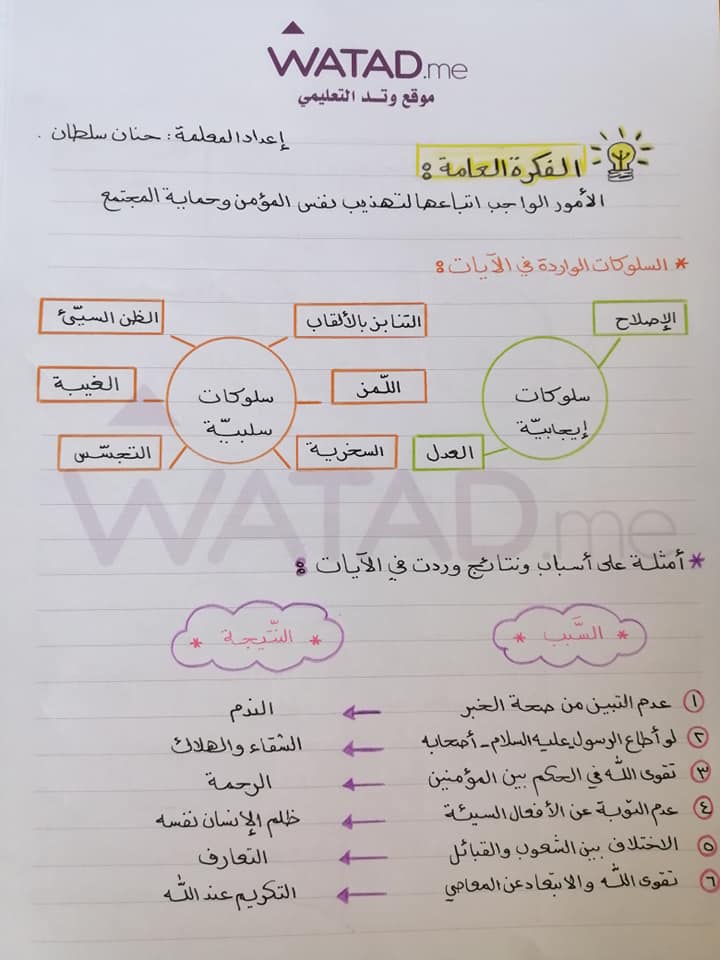 WATAD.me
موقع وتد التعليمي
إعداد المعلمة: حنان سلطان.
الفكرة العامة:
الأمور الواجب اتباعها لتهذيب نفس المؤمن وحماية المجتمع
* السلوكات الواردة في الآيات:
الإصلاح
التنابز بالألقاب
الظن السيّئ
سلوكات
إيجابيّة
اللّمز
سلوكات
سلبيّة
الغيبة
العدل
السخرية
التجسّس
WATAD.me
* أمثلة على أسباب ونتائج وردت في الآيات:
* السَّبب *
* النّتيجة *
١ عدم التبين من صحة الخبر ← الندم
٢ لو أطاع الرسول عليه السلام - أصحابه ← الشقاء والهلاك
٣ تقوى الله في الحكم بين المؤمنين ← الرحمة
٤ عدم التوبة عن الأفعال السيئة ← ظلم الإنسان نفسه
٥ الاختلاف بين الشعوب والقبائل ← التعارف
٦ تقوى الله والابتعاد عن المعاصي ← التكريم عند الله